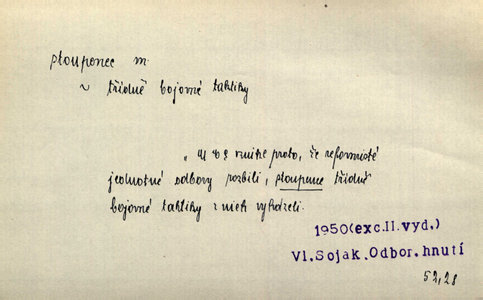 stoupenec m
~ třídně bojovné taktiky
vznikl proto, že reformisté
jednotné odbory rozbili, stoupence třídně
bojovné taktiky z nich vyházeli.
1950(exc.II.vyd.)
Vl.Soják.Odbor.hnutí
52,28